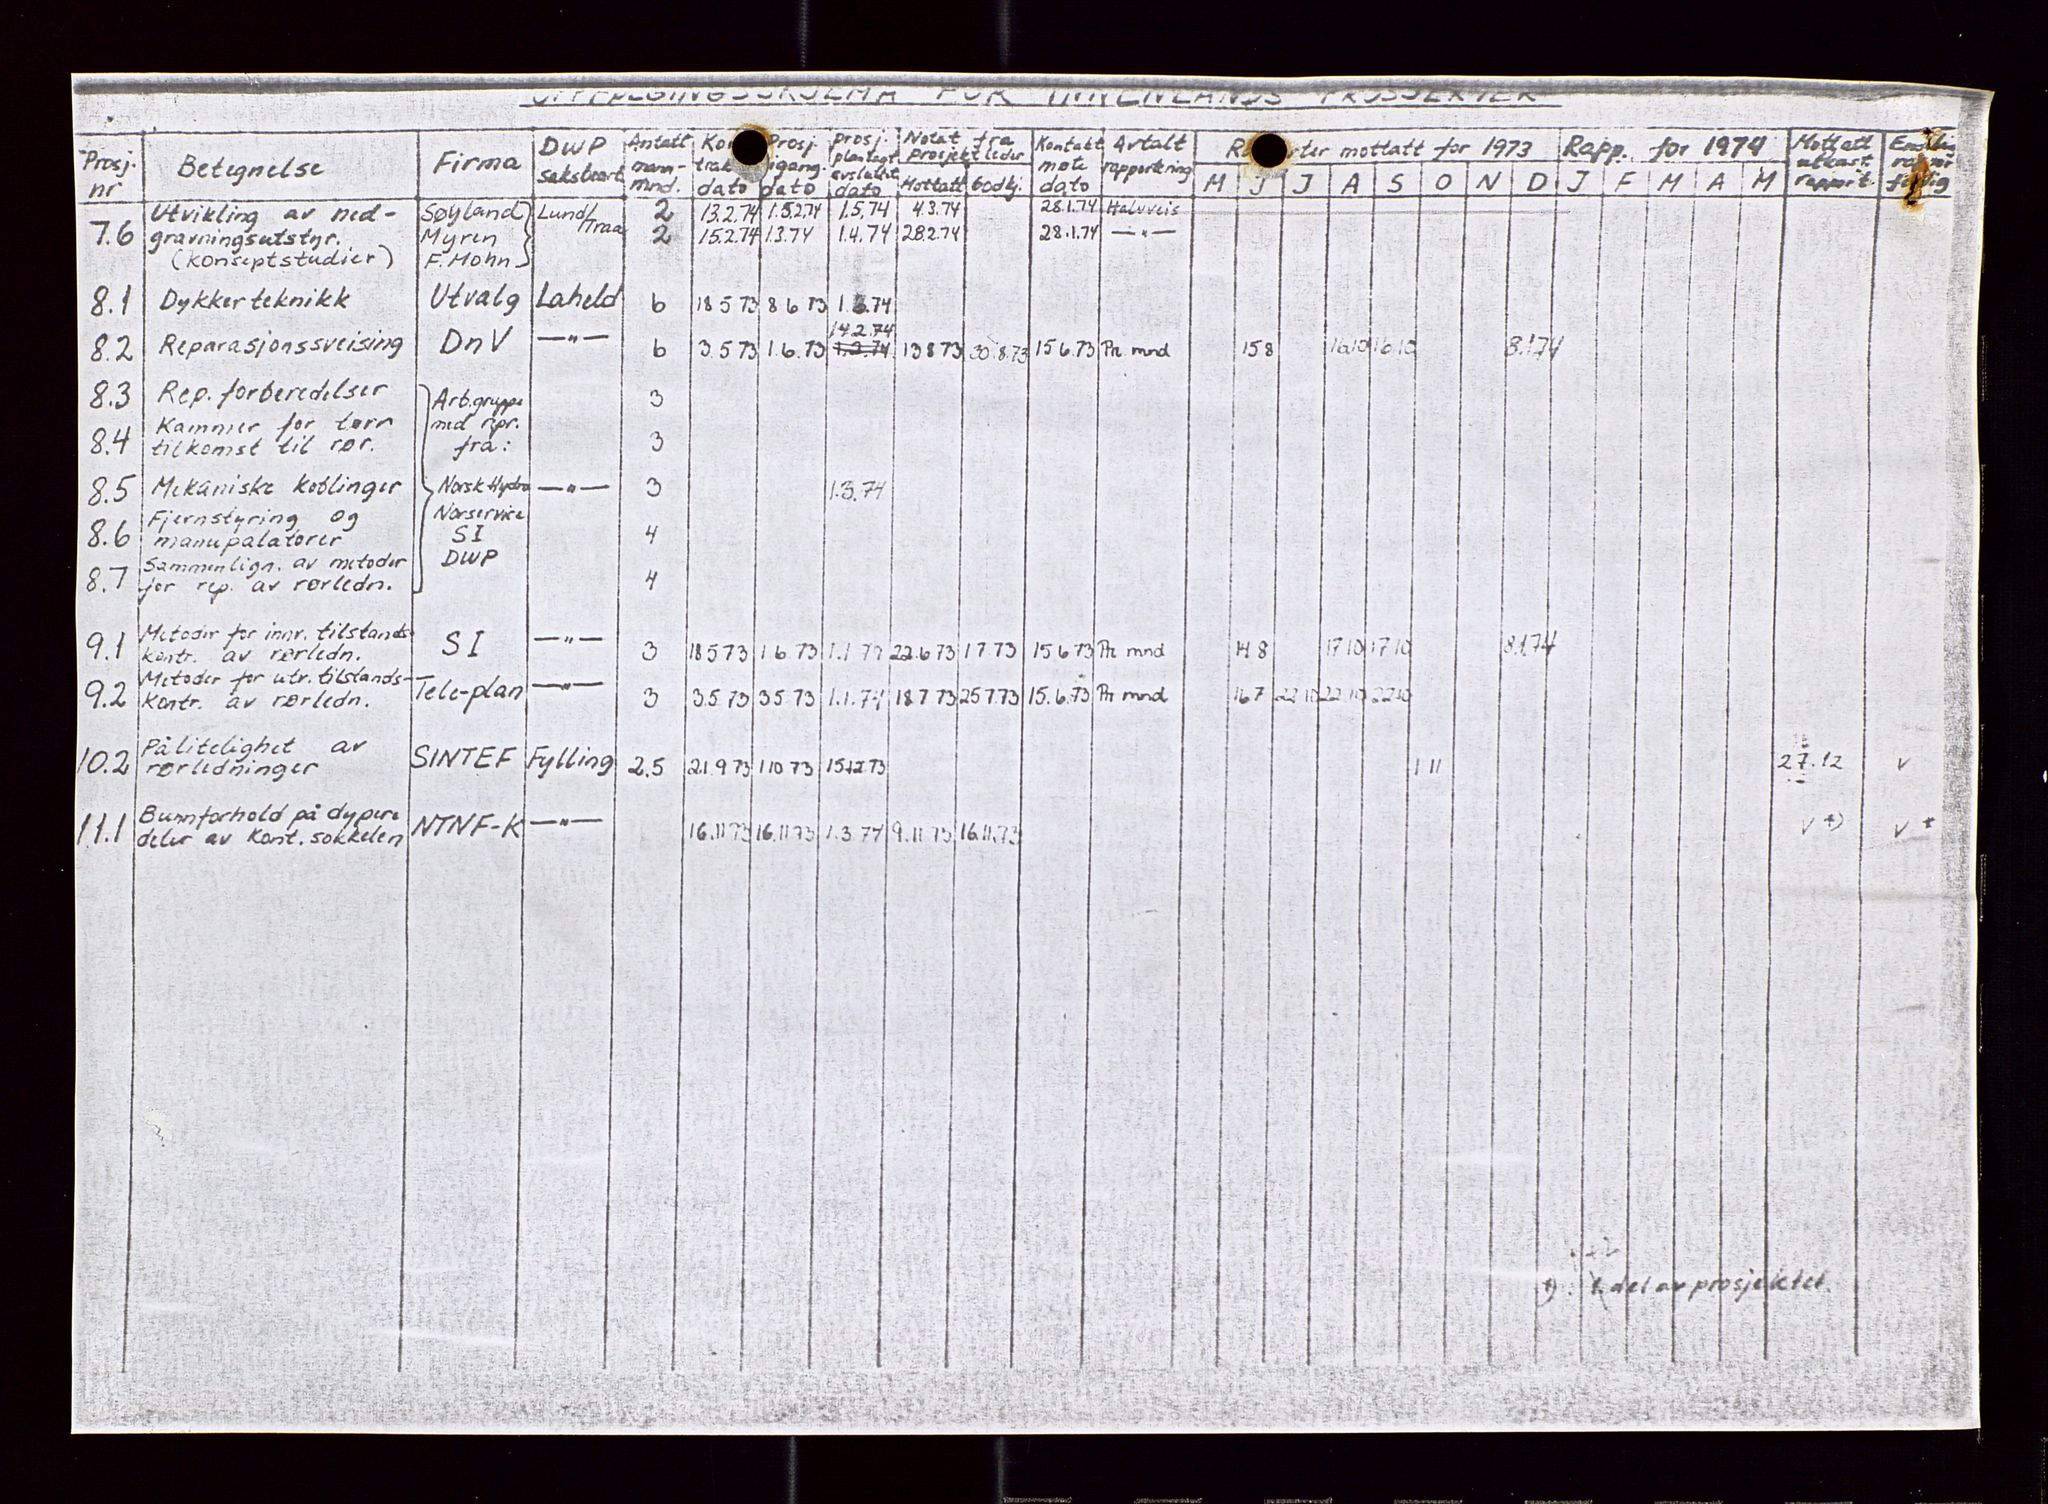 OPPFØLGINGSSKJEMA FOR INNENLANDS PROSJEKTER
Prosj. nr | Betegnelse | Firma | DWP saksbearb. | Antatt mann- mnd. | dato | Prosj. igang. dato | Prosj. planlagt avsluttet dato | Notat fra prosjektleder Mottatt Godkj. | Kontakt møte dato | Avtalt rapportering | mottatt for 1973 M J J A S O N D | Rapp. for 1974 J F M A M | Mottatt utkast rapport.
7.6 Utvikling av ned- Søyland Lund/ 2 13.2.74 1.5.2.74 1.5.74 4.3.74 28.1.74 Halvveis
gravningsutstyr. Myren Traa 2 15.2.74 1.3.74 1.4.74 28.2.74 28.1.74 —"—
(Konseptstudier) F. Mohn
8.1 Dykkerteknikk Utvalg Laheld 6 18.5.73 8.6.73
14.2.74
8.2 Reparasjonssveising DnV —"— 6 3.5.73 1.6.73 1.2.74 13.8.73 30.8.73 15.6.73 Pr. mnd 15.8 16.10 16.10 8.1.74
8.3 Rep. forberedelser Arb.gruppe 3
8.4 Kammer for tørr med repr. 3
tilkomst til rør. fra:
8.5 Mekaniske koblinger Norsk Hydro —"— 3 1.3.74
8.6 Fjernstyring og Norservice
manupalatorer SI 4
8.7 Sammenlign. av metoder DWP
for rep. av rørledn. 4
9.1 Metoder for innv. tilstands-
kontr. av rørledn. SI —"— 3 18.5.73 1.6.73 22.6.73 1.7.73 15.6.73 Pr. mnd 14.8 17.10 17.10 8.1.74
9.2 Metoder for utv. tilstands-
kontr. av rørledn. Tele-plan —"— 3 3.5.73 3.5.73 1.1.74 18.7.73 25.7.73 15.6.73 Pr mnd 16.7 22.10 22.10 22.10
10.2 Pålitelighet av
rørledninger SINTEF Fylling 2.5 21.9.73 1.10.73 15.12.73 1.11 27.12 v
11.1 Bunnforhold på dypere
deler av kont. sokkelen NTNF-K —"— 16.11.73 16.11.73 1.3.74 9.11.73 16.11.73 v +) v +
+) 1. del av prosjektet.